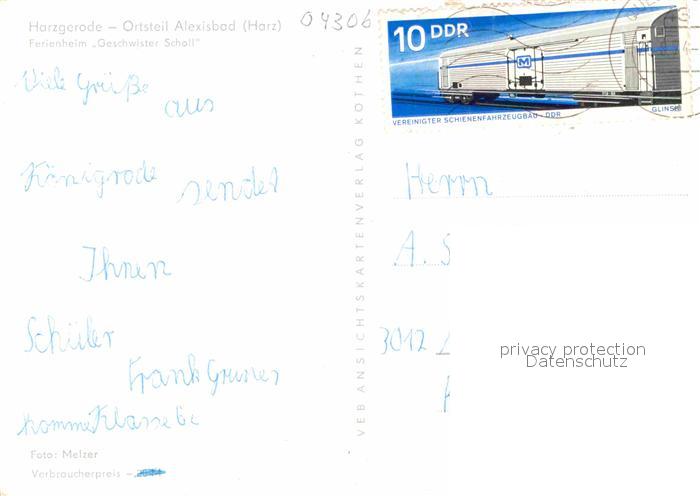 Harzgerode – Ortsteil Alexisbad (Harz)
Ferienheim „Geschwister Scholl"
04306
10 DDR
VEREINIGTER SCHIENENFAHRZEUGBAU · DDR
GLINSKI
Viele Grüße
aus
Königrode sendet
Ihnen
Schüler
Frank
Klasse
Foto: Melzer
Verbraucherpreis –
VEB ANSICHTSKARTENVERLAG KÖTHEN
Herrn
A. S
3012
privacy protection
Datenschutz